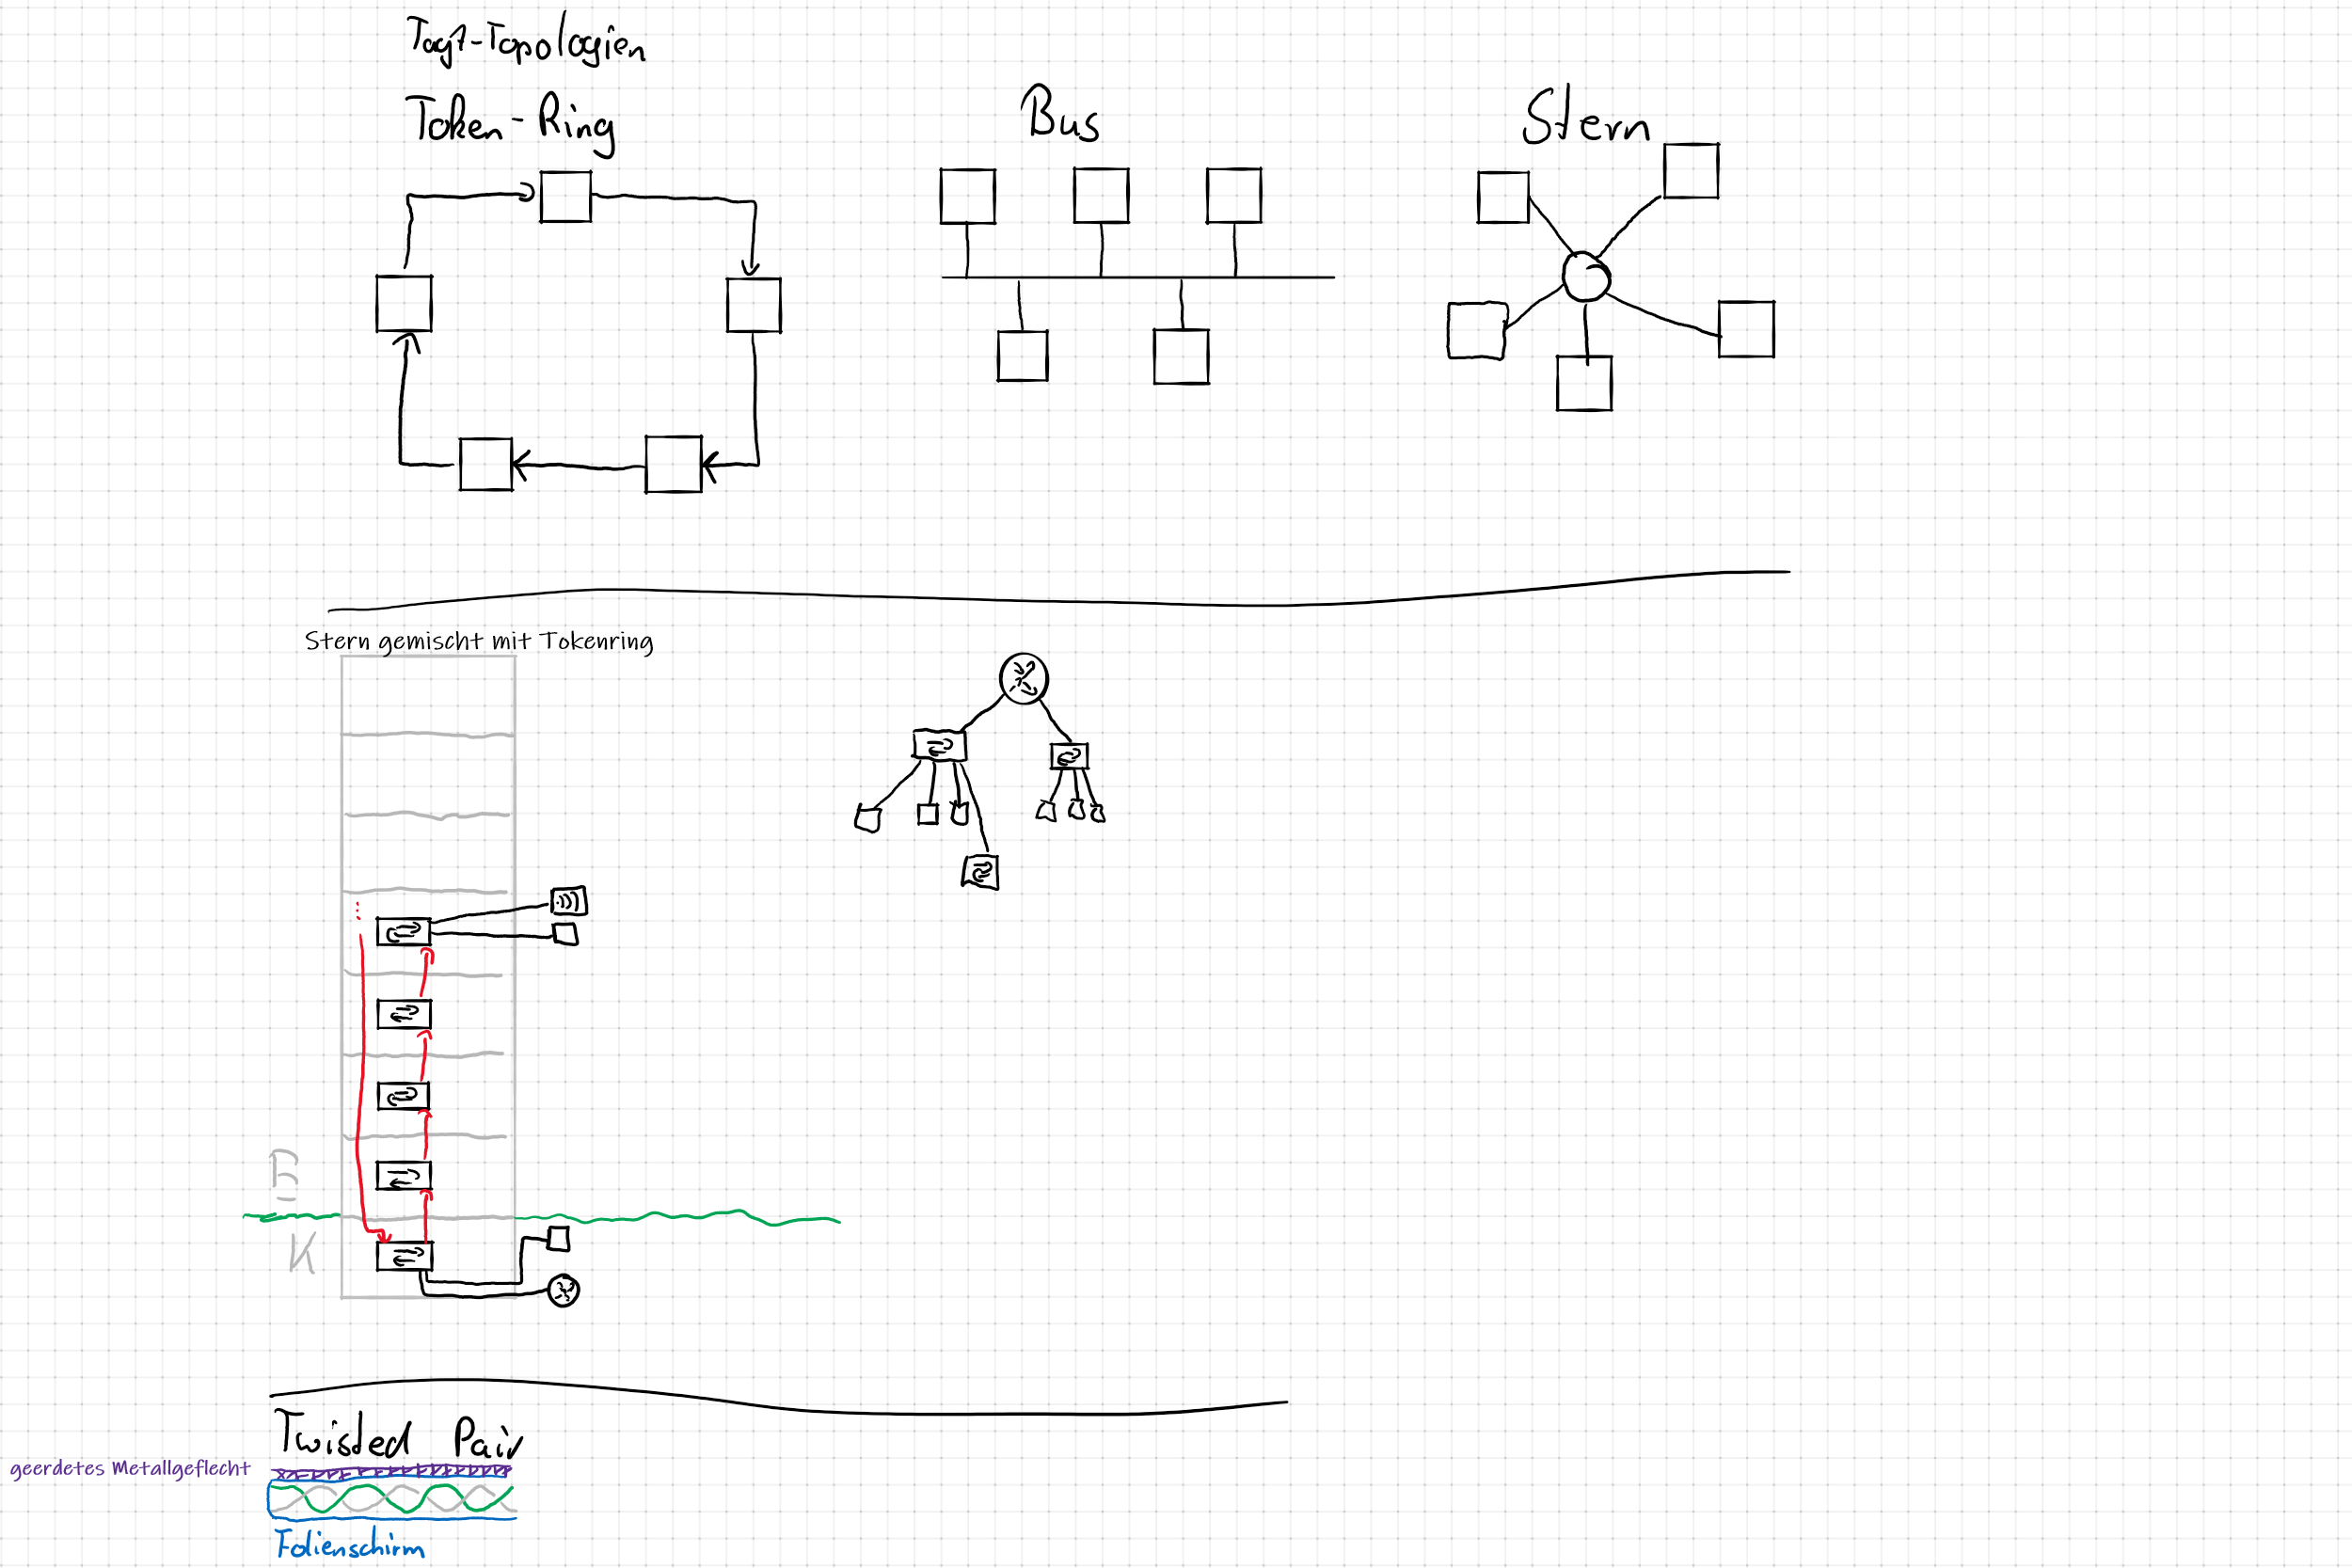 Tag1-Topologien
Token-Ring
Bus
Stern
Stern gemischt mit Tokenring
E
K
Twisted Pair
geerdetes Metallgeflecht
Folienschirm